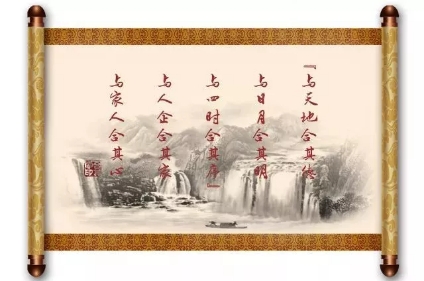 『与天地合其德
与日月合其明
与四时合其序』
与人企合其家
与家人合其心